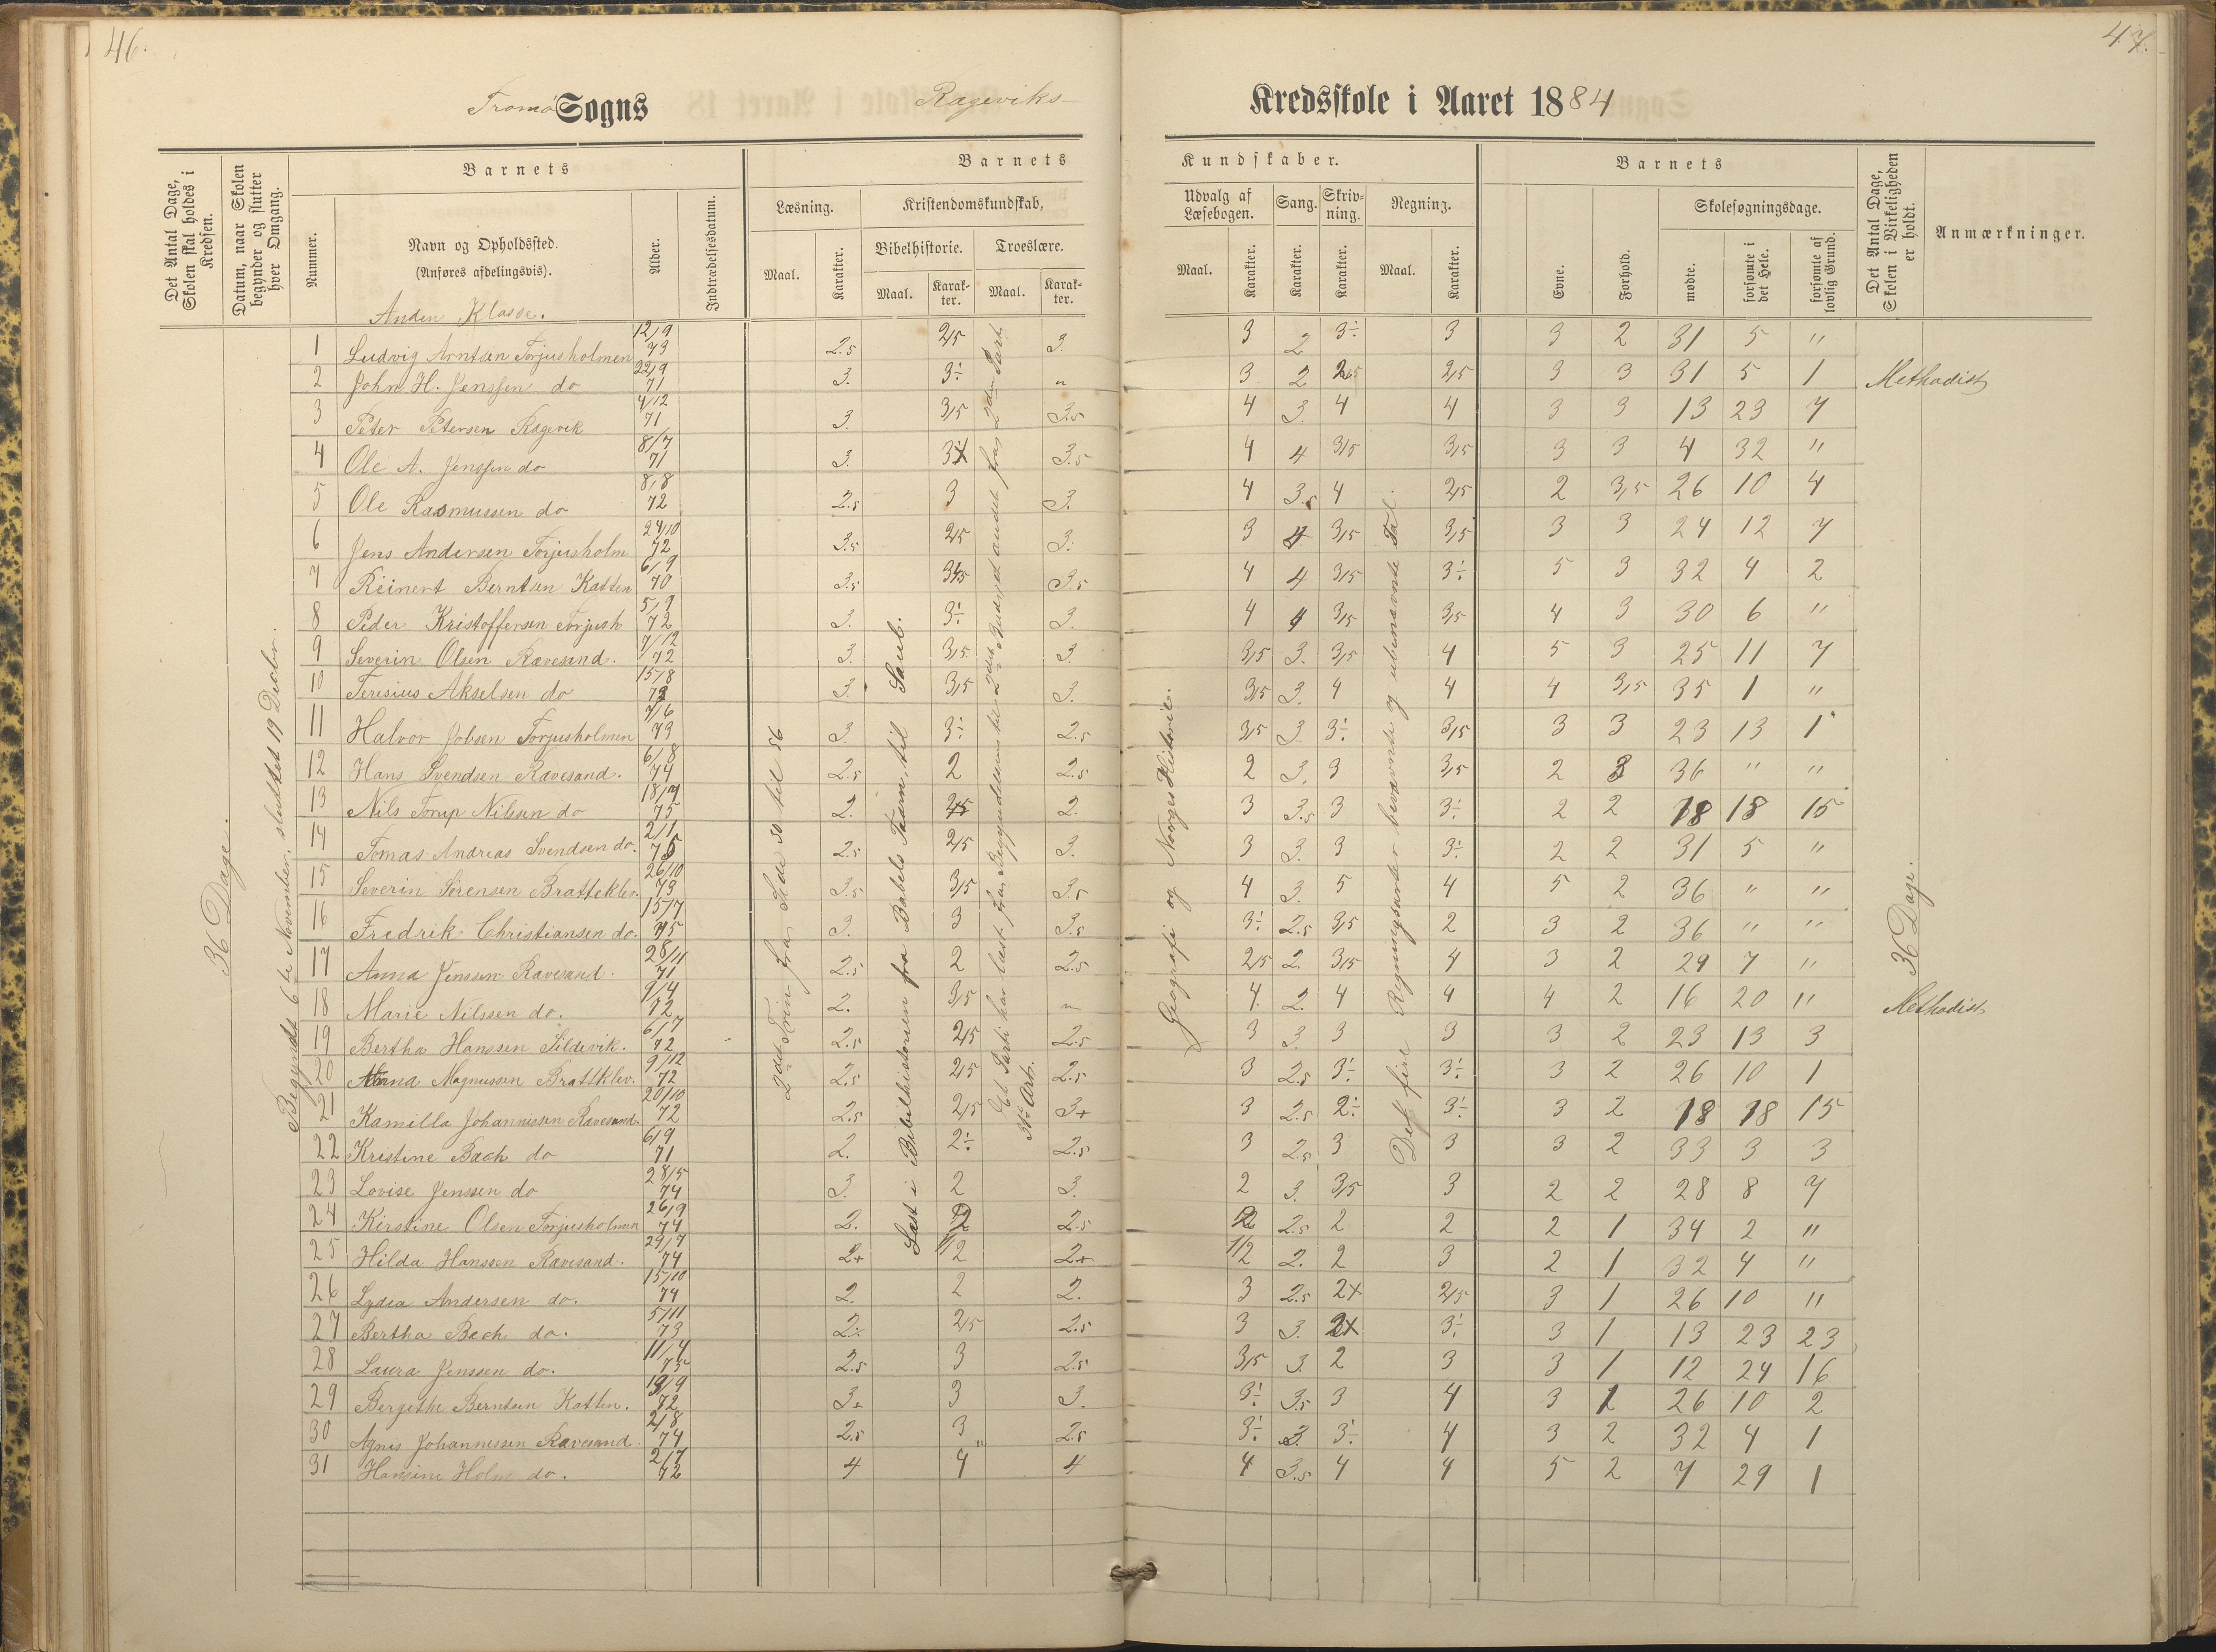 46.
47.
Tromø Sogns Rageviks Kredsskole i Aaret 1884
Det Antal Dage, Skolen skal holdes i Kredsen.
Datum, naar Skolen begynder og slutter hver Omgang.
Barnets
Nummer.
Navn og Opholdssted.
(Anføres afdelingsvis).
Alder.
Indtrædelsesdatum.
Barnets Kundskaber.
Læsning.
Maal.
Karakter.
Kristendomskundskab,
Bibelhistorie.
Maal.
Karakter.
Troeslære.
Maal.
Karakter.
Udvalg af Læsebogen.
Maal.
Karakter.
Sang.
Karakter.
Skrivning.
Karakter.
Regning.
Maal.
Karakter.
Barnets
Evne.
Forhold.
Skolesøgningsdage.
mødte.
forsømte i det Hele.
forsømte af lovlig Grund.
Det Antal Dage, Skolen i Virkeligheden er holdt.
Anmærkninger.
Anden Klasse.
36 Dage.
Begyndte 6te November, sluttet 19 Decbr.
2det Trin fra Side 50 til 56
Læst i Bibelhistorien fra Babels Taarn til Saul.
Et Parti har læst fra Begyndelsen til 2det Bud, et andet fra 2den Part 3die Art.
Geografi og Norges Historie.
De fire Regningsarter benævnte og ubenævnte Tal.
36 Dage.
1 Ludvig Arntsen Torjusholmen 12/9 73 2.5 2,5 3. 3 2 3÷ 3 3 2 31 5 "
2 John H. Jenssen do 22/9 71 3. 3÷ " 3 2 2,5 2,5 3 3 31 5 1 Methodist
3 Peter Petersen Ragevik 4/12 71 3. 3,5 3.5 4 3. 4 4 3 3 13 23 7
4 Ole A. Jenssen do 8/7 71 3. 3.5 4 4 3,5 3,5 3 3 4 32 "
5 Ole Rasmussen do 8/8 72 2.5 3 3. 4 3.5 4 2,5 2 3,5 26 10 4
6 Jens Andersen Torjusholm 24/10 72 3.5 2,5 3. 3 4 3,5 3,5 3 3 24 12 7
7 Reinert Berntsen Katten 6/9 70 3.5 3,5 3.5 4 4 3,5 3÷ 5 3 32 4 2
8 Peder Kristoffersen Torjush 5/9 72 3. 3÷ 3. 4 4 3,5 3,5 4 3 30 6 "
9 Severin Olsen Rævesand. 7/12 72 3. 3,5 3. 3,5 3. 3,5 4 5 3 25 11 7
10 Teresius Akselsen do 15/8 3. 3,5 3. 3,5 3. 4 4 4 3,5 35 1 "
11 Halvor Jobsen Torjusholmen 7/6 73 3. 3÷ 2.5 3,5 3 3÷ 3,5 3 3 23 13 1
12 Hans Svendsen Rævesand. 6/8 74 2.5 2 2.5 2 3. 3 3,5 2 3 36 " "
13 Nils Torup Nilssen do 75 2. 2. 3 3.5 3 3÷ 2 2 18 18 15
14 Tomas Andreas Svendsen do. 2/1 75 2.5 2,5 3. 3 3. 3 3÷ 2 2 31 5 "
15 Severin Sørensen Bratteklev. 26/10 73 3.5 3,5 3.5 4 3. 5 4 5 2 36 " "
16 Fredrik Christiansen do. 15/7 75 3. 3 3.5 3÷ 2.5 3,5 2 3 2 36 " "
17 Anna Jenssen Rævesand. 71 2.5 2 2.5 2,5 2. 3,5 4 3 2 29 7 "
18 Marie Nilssen do. 9/4 72 2. 3,5 " 4 2. 4 4 4 2 16 20 " Methodist
19 Bertha Hanssen Sildevik. 6/7 72 2.5 2,5 2.5 3 3. 3 3 3 2 23 13 3
20 Magnussen Brattklev. 9/12 72 2.5 2,5 2.5 3 2.5 3÷ 3÷ 3 2 26 10 1
21 Kamilla Johannessen Rævesand. 20/10 72 2.5 2,5 3+ 3 2.5 2÷ 3÷ 3 2 18 18 15
22 Kristine Bach do 6/9 71 2. 2÷ 2.5 3 2.5 3 3 3 2 33 3 3
23 Lovise Jenssen do 28/5 74 3. 2 3. 2 3. 3,5 3 2 2 28 8 7
24 Kirstine Olsen Torjusholmen 26/9 74 2. 2 2.5 2.5 2 2 2 1 34 2 "
25 Hilda Hanssen Rævesand. 29/7 74 2+ 1/2 2+ 1/2 2. 2 3 2 1 32 4 "
26 Lydia Andersen do. 15/10 74 2. 2 2. 3 2.5 2+ 2,5 3 1 26 10 "
27 Bertha Bach do. 5/11 73 2÷ 2,5 2.5 3 3. 2+ 3÷ 3 1 13 23 23
28 Laura Jenssen do. 75 2.5 3 2.5 3,5 3. 2 3 3 1 12 24 16
29 Bergithe Berntsen Katten. 72 3+ 3 3. 3÷ 3.5 3 4 3 1 26 10 2
30 Agnes Johannessen Rævesand. 2/8 74 2.5 3 2.5 3÷ 3 3÷ 4 3 2 32 4 1
31 Hansine Holm do. 2/7 72 4 4 4 4 3.5 4 4 5 2 7 29 1